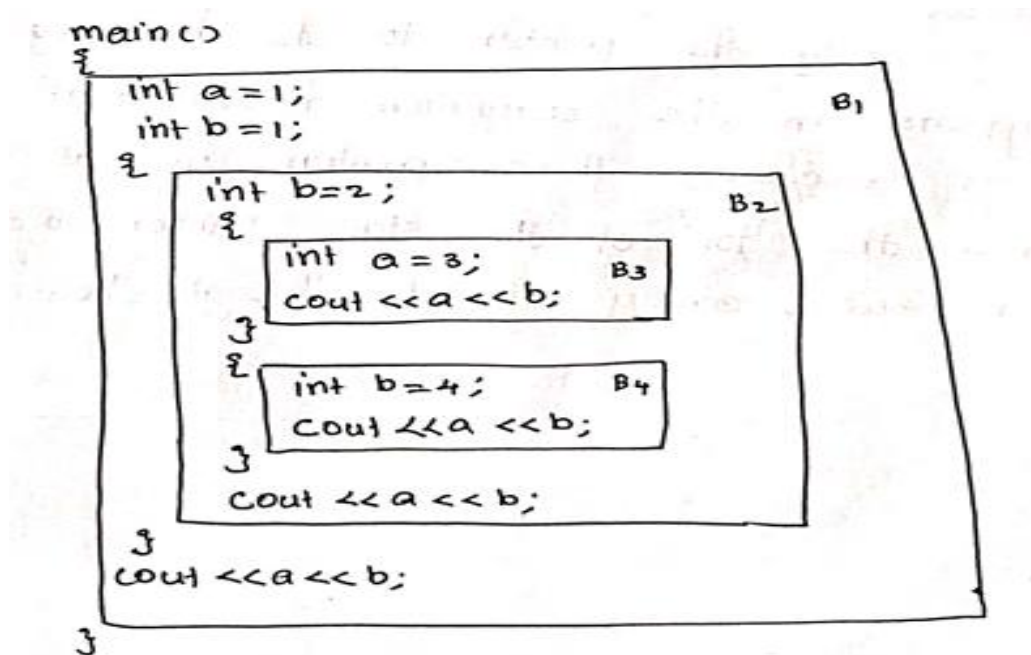 main()
{
int a = 1; B1
int b = 1;
{
int b=2; B2
{
int a = 3; B3
cout <<a <<b;
}
{
int b=4; B4
cout <<a <<b;
}
cout <<a << b;
}
cout <<a << b;
}